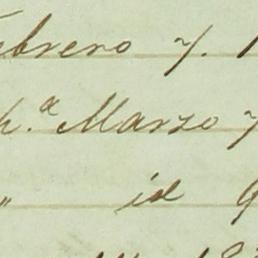 Febrero 7. 1
h.ª Marzo 7
" id 9